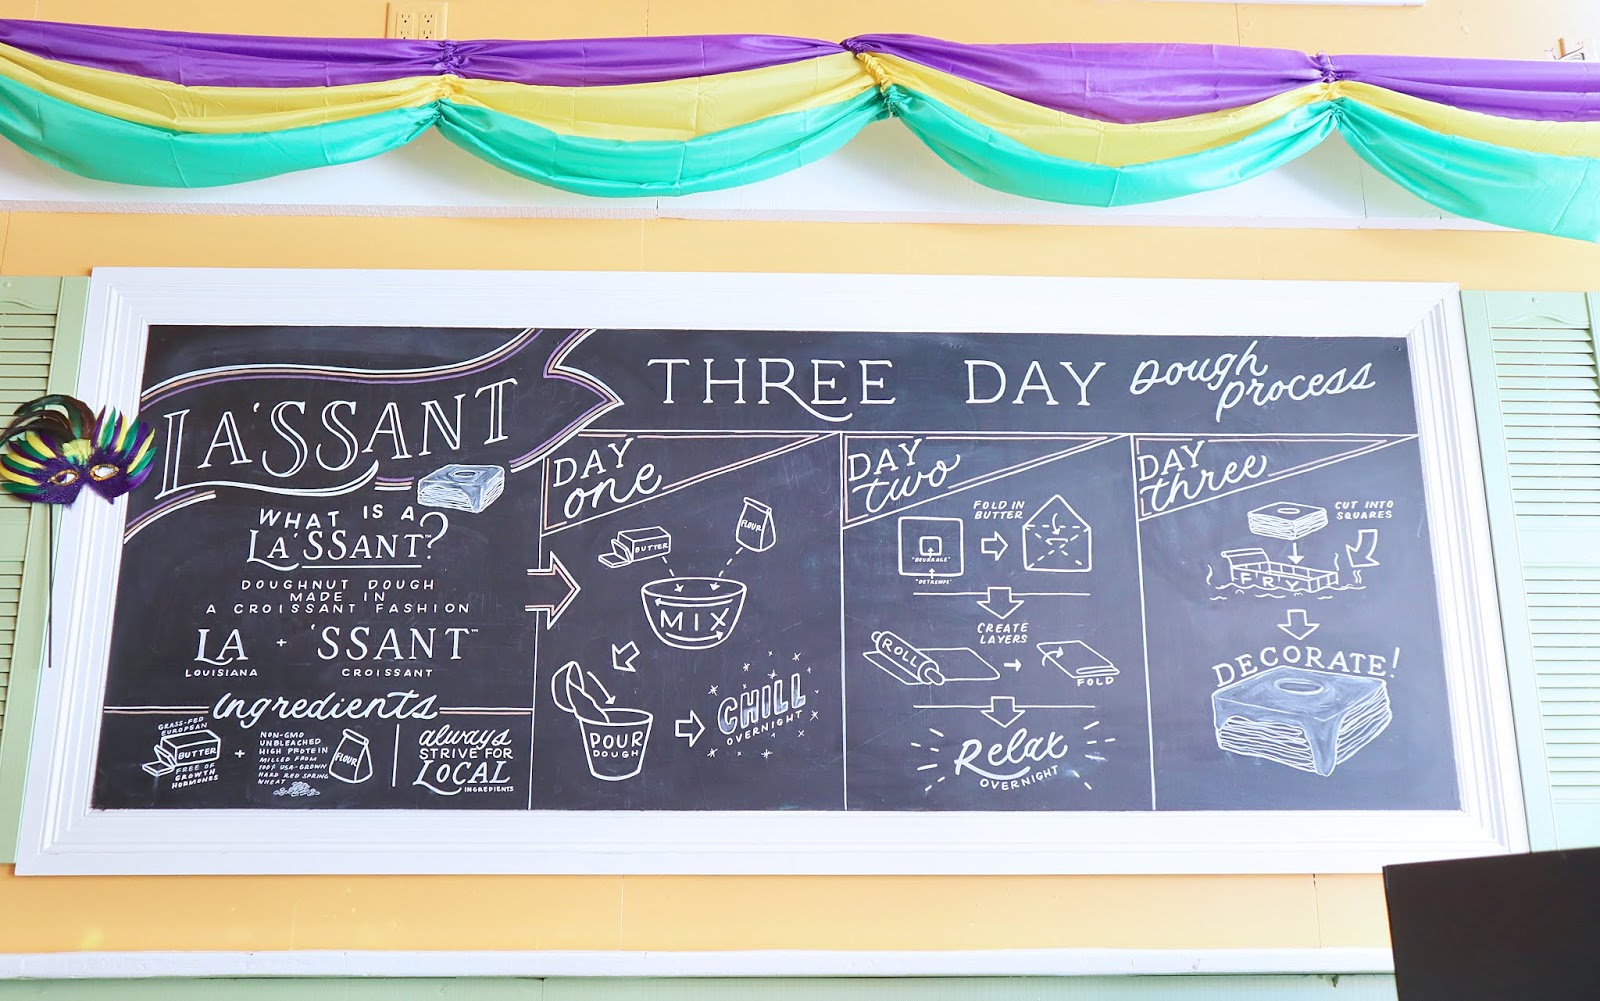 LA'SSANT
WHAT IS A
LA'SSANT™?
DOUGHNUT DOUGH
MADE IN
A CROISSANT FASHION
LA + 'SSANT™
LOUISIANA CROISSANT
Ingredients
GRASS-FED
EUROPEAN
BUTTER
FREE OF
GROWTH
HORMONES
+
NON-GMO
UNBLEACHED
HIGH PROTEIN
MILLED FROM
100% USA-GROWN
HARD RED SPRING
WHEAT
FLOUR
always
STRIVE FOR
LOCAL
INGREDIENTS
THREE DAY Dough
process
DAY
one
BUTTER
FLOUR
MIX
POUR
DOUGH
CHILL
OVERNIGHT
DAY
two
FOLD IN
BUTTER
"BEURRAGE"
"DETREMPE"
CREATE
LAYERS
ROLL
FOLD
Relax
OVERNIGHT
DAY
three
CUT INTO
SQUARES
FRY
DECORATE!